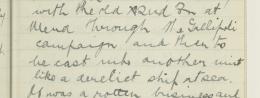 with the old 22nd Bn at
Mena through the Gallipoli
campaign and then to
be cast into another unit
like a derelict ship at sea.
It was a rotten business and